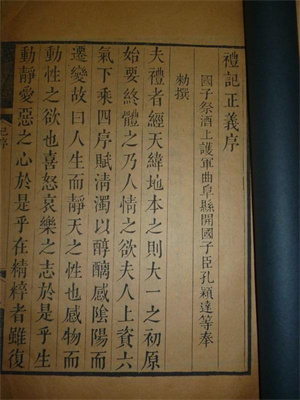 禮記正義序
國子祭酒上護軍曲阜縣開國子臣孔穎達等奉
勅撰
夫禮者經天緯地本之則大一之初原
始要終體之乃人情之欲夫人上資六
氣下乘四序賦清濁以醇醨感陰陽而
遷變故曰人生而靜天之性也感物而
動性之欲也喜怒哀樂之志於是乎生
動靜愛惡之心於是乎在精粹者雖復